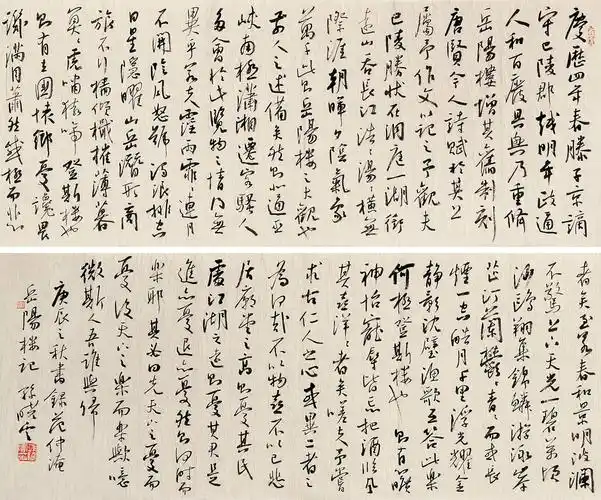 慶歷四年春滕子京謫
守巴陵郡越明年政通
人和百廢具興乃重修
岳陽樓增其舊制刻
唐賢今人詩賦於其上
屬予作文以記之予觀夫
巴陵勝狀在洞庭一湖銜
遠山吞長江浩浩湯湯橫無
際涯朝暉夕陰氣象
萬千此則岳陽樓之大觀也
前人之述備矣然則北通巫
峽南極瀟湘遷客騷人
多會於此覽物之情得無
異乎若夫霪雨霏霏連月
不開陰風怒號濁浪排空
日星隱曜山岳潛形商
旅不行檣傾楫摧薄暮
冥冥虎嘯猿啼登斯樓也
則有去國懷鄉憂讒畏
譏滿目蕭然感極而悲
者矣至若春和景明波瀾
不驚上下天光一碧萬頃
沙鷗翔集錦鱗游泳岸
芷汀蘭鬱鬱青青而或長
煙一空皓月千里浮光耀金
靜影沈璧漁歌互答此樂
何極登斯樓也則有曠心
神怡寵辱皆忘把酒臨風
其喜洋洋者矣嗟夫予嘗
求古仁人之心或異二者之
為何哉不以物喜不以己悲
居廟堂之高則憂其民
處江湖之遠則憂其君是
進亦憂退亦憂然則何時而
樂耶其必曰先天下之憂而
憂後天下之樂而樂歟噫
微斯人吾誰與歸
庚辰之秋書錄范仲淹
岳陽樓記 孫曉雲